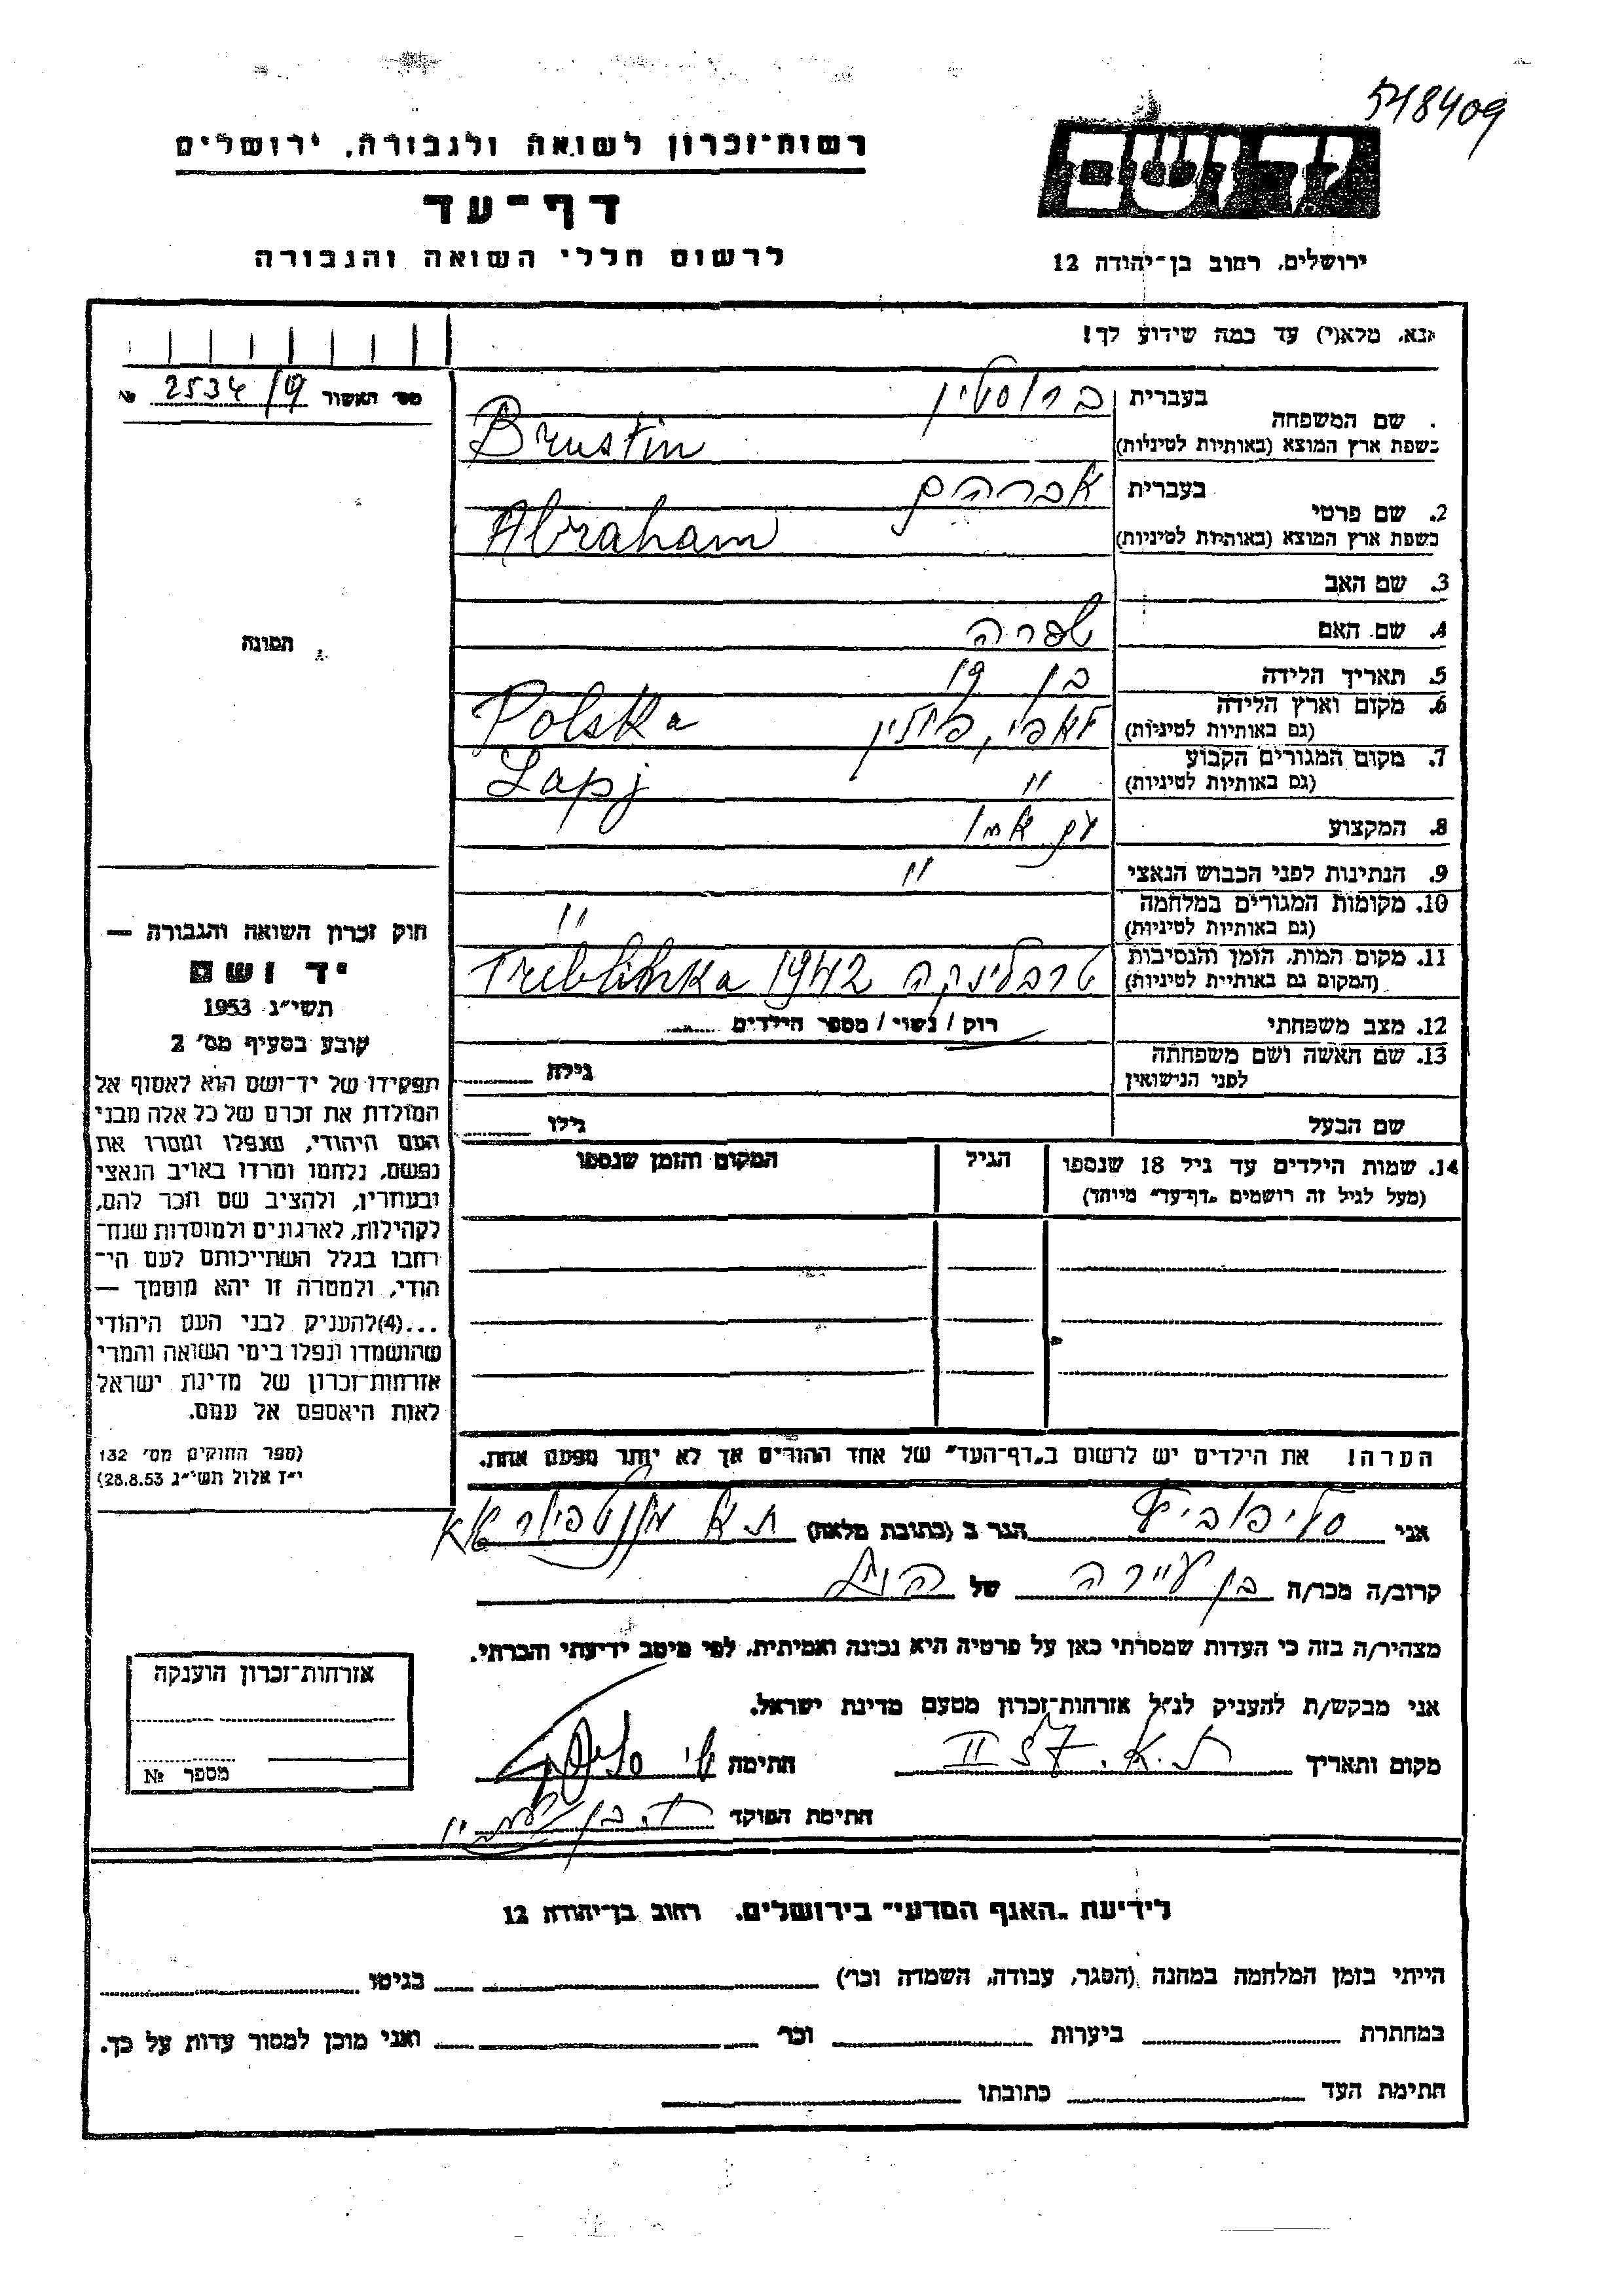 548409
ידושם
ירושלים, רחוב בן-יהודה 12
רשות-זכרון לשואה ולגבורה, ירושלים
דף-עד
לרשום חללי השואה והגבורה
נא, מלא(י) עד כמה שידוע לך!
מס׳ האשור 2534/19 №
תמונה
שם המשפחה
בעברית ברוסטין
בשפת ארץ המוצא (באותיות לטיניות) Brustin
2. שם פרטי
בעברית אברהם
בשפת ארץ המוצא (באותיות לטיניות) Abraham
3. שם האב
4. שם האם שפרה
5. תאריך הלידה בן 19
6. מקום וארץ הלידה לאפי, פולין Polska
(גם באותיות לטיניות)
7. מקום המגורים הקבוע " Lapj
(גם באותיות לטיניות)
8. המקצוע עם אמו
9. הנתינות לפני הכבוש הנאצי "
10. מקומות המגורים במלחמה "
(גם באותיות לטיניות)
11. מקום המות, הזמן והנסיבות טרבלינקה 1942 Treblinka
(המקום גם באותיית לטיניות)
12. מצב משפחתי רוק / נשוי / מספר הילדים
13. שם האשה ושם משפחתה
לפני הנישואין גילה
שם הבעל גילו
14. שמות הילדים עד גיל 18 שנספו הגיל המקום והזמן שנספו
(מעל לגיל זה רושמים „דף-עד״ מיוחד)
הערה! את הילדים יש לרשום ב„דף-העד״ של אחד ההורים אך לא יותר מפעם אחת.
חוק זכרון השואה והגבורה —
יד ושם
תשי״ג 1953
קובע בסעיף מס׳ 2
תפקידו של יד-ושם הוא לאסוף אל
המולדת את זכרם של כל אלה מבני
העם היהודי, שנפלו ומסרו את
נפשם, נלחמו ומרדו באויב הנאצי
ובעוזריו, ולהציב שם וזכר להם,
לקהילות, לארגונים ולמוסדות שנח-
רבו בגלל השתייכותם לעם הי-
הודי, ולמטרה זו יהא מוסמך —
...(4)להעניק לבני העם היהודי
שהושמדו ונפלו בימי השואה והמרי
אזרחות-זכרון של מדינת ישראל
לאות היאספם אל עמם.
(ספר החוקים מס׳ 132
י״ז אלול תשי״ג 28.8.53)
אני הגר ב (כתובת מלאה) ת.א
קרוב/ה מכר/ה בן עיירה של
מצהיר/ה בזה כי העדות שמסרתי כאן על פרטיה היא נכונה ואמיתית, לפי מיטב ידיעתי והכרתי.
אני מבקש/ת להעניק לנ״ל אזרחות-זכרון מטעם מדינת ישראל.
מקום ותאריך ת.א. 57 II חתימה
חתימת הפוקד
אזרחות-זכרון הוענקה
מספר №
לידיעת „האגף המדעי״ בירושלים, רחוב בן-יהודה 12
הייתי בזמן המלחמה במחנה (הסגר, עבודה, השמדה וכר׳) בגיטו
במחתרת ביערות וכר׳ ואני מוכן למסור עדות על כך.
חתימת העד כתובתו